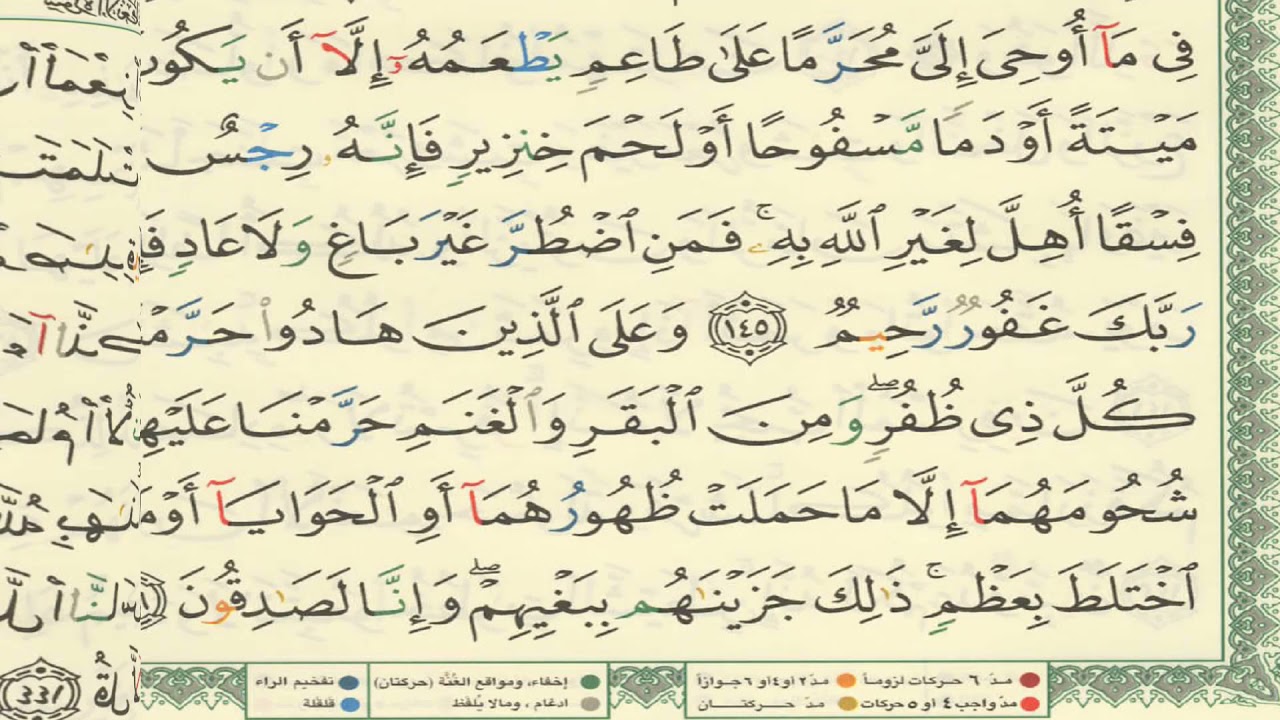 فِى مَآ أُوحِىَ إِلَىَّ مُحَرَّمًا عَلَىٰ طَاعِمٍ يَطْعَمُهُۥٓ إِلَّآ أَن يَكُونَ
مَيْتَةً أَوْ دَمًا مَّسْفُوحًا أَوْ لَحْمَ خِنزِيرٍ فَإِنَّهُۥ رِجْسٌ
فِسْقًا أُهِلَّ لِغَيْرِ ٱللَّهِ بِهِۦ ۚ فَمَنِ ٱضْطُرَّ غَيْرَ بَاغٍ وَلَا عَادٍ
رَبَّكَ غَفُورٌ رَّحِيمٌ ١٤٥ وَعَلَى ٱلَّذِينَ هَادُوا۟ حَرَّمْنَا
كُلَّ ذِى ظُفُرٍ ۖ وَمِنَ ٱلْبَقَرِ وَٱلْغَنَمِ حَرَّمْنَا عَلَيْهِمْ
شُحُومَهُمَآ إِلَّا مَا حَمَلَتْ ظُهُورُهُمَآ أَوِ ٱلْحَوَايَآ أَوْ مَا
ٱخْتَلَطَ بِعَظْمٍ ۚ ذَٰلِكَ جَزَيْنَٰهُم بِبَغْيِهِمْ ۖ وَإِنَّا لَصَٰدِقُونَ
مدّ ٦ حركات لزوماً مدّ ٢ أو ٤ أو ٦ جوازاً إخفاء، ومواقع الغُنَّة (حركتان) تفخيم الراء
مدّ واجب ٤ أو ٥ حركات مدّ حركتان ادغام ، ومالا يُلفَظ قلقلة